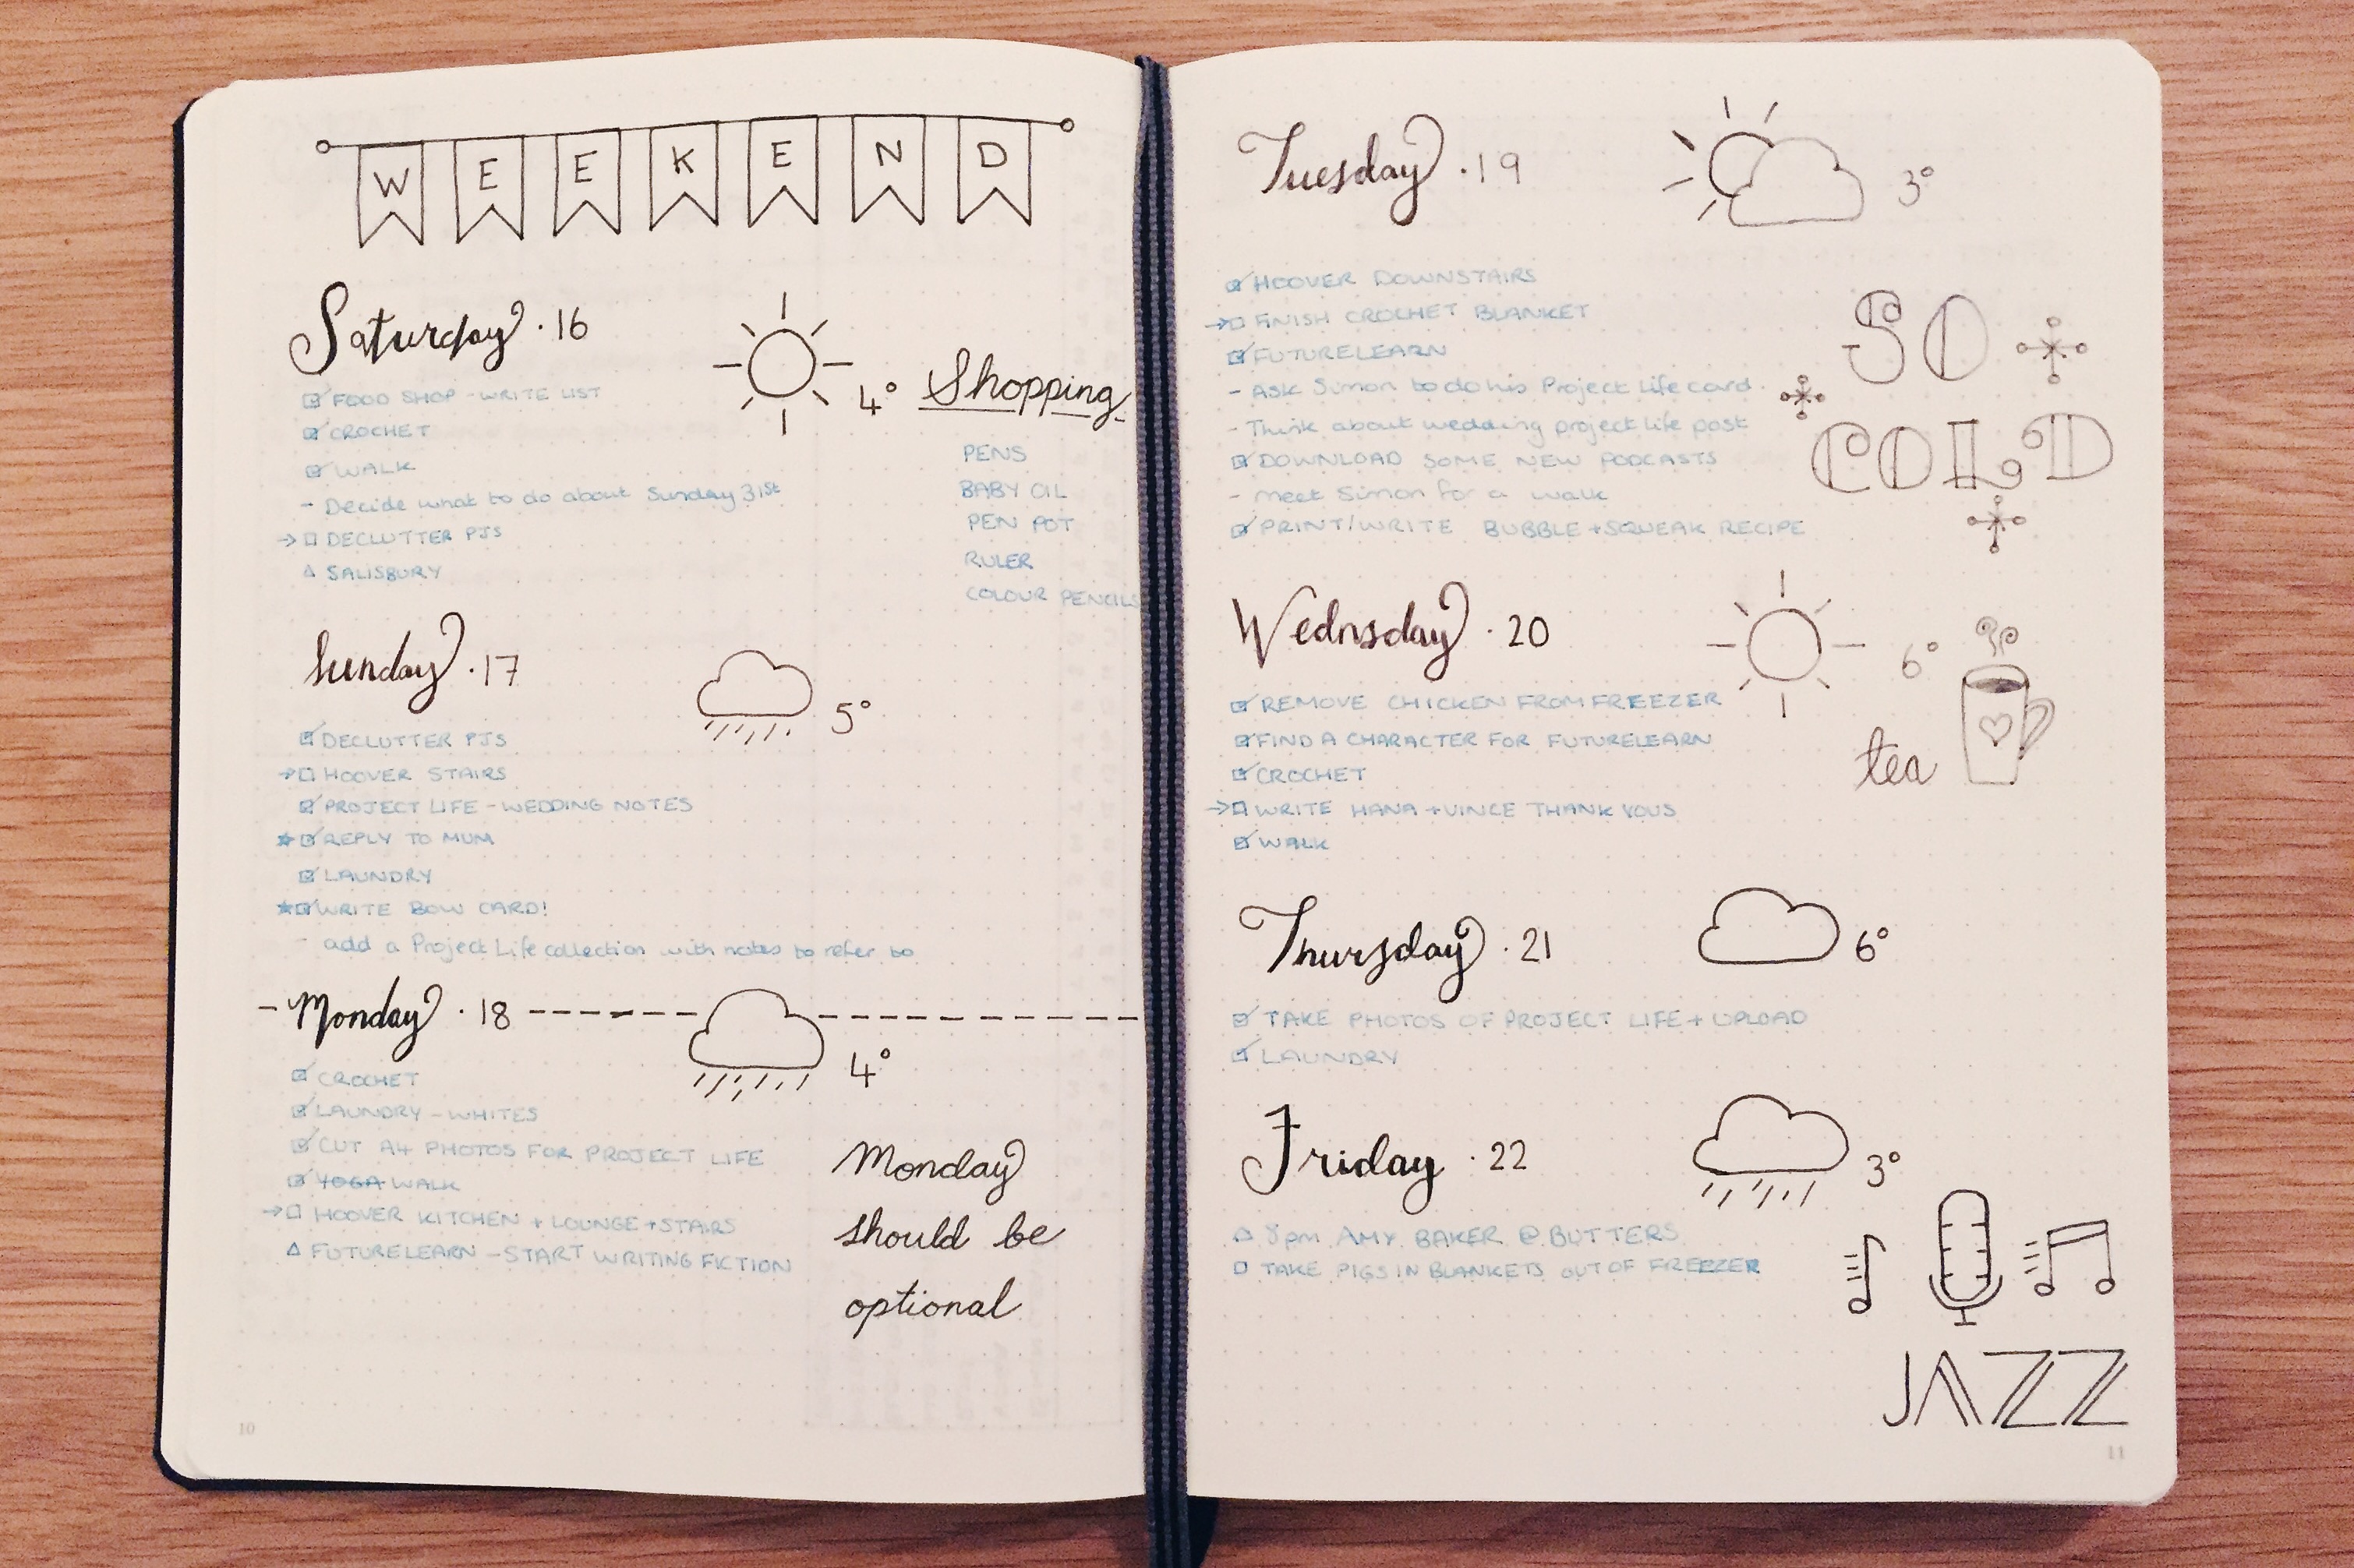 WEEKEND
Saturday · 16
4°
FOOD SHOP - WRITE LIST
CROCHET
WALK
- Decide what to do about Sunday 31st
→ DECLUTTER PJS
SALISBURY
Shopping
PENS
BABY OIL
PEN POT
RULER
COLOUR PENCILS
Sunday · 17
5°
DECLUTTER PJS
→ HOOVER STAIRS
PROJECT LIFE - WEDDING NOTES
REPLY TO MUM
LAUNDRY
WRITE BOW CARD!
- add a Project Life collection with notes to refer to
Monday · 18
4°
CROCHET
LAUNDRY - WHITES
CUT A4 PHOTOS FOR PROJECT LIFE
YOGA WALK
→ HOOVER KITCHEN + LOUNGE + STAIRS
FUTURELEARN - START WRITING FICTION
Monday
should be
optional
10
Tuesday · 19
3°
HOOVER DOWNSTAIRS
→ FINISH CROCHET BLANKET
FUTURELEARN
- Ask Simon to do his Project Life card.
- Think about wedding project life post
DOWNLOAD SOME NEW PODCASTS
- meet Simon for a walk
PRINT/WRITE BUBBLE + SQUEAK RECIPE
SO
COLD
Wednsday · 20
6°
REMOVE CHICKEN FROM FREEZER
FIND A CHARACTER FOR FUTURELEARN
CROCHET
→ WRITE HANA + VINCE THANK YOUS
WALK
tea
Thursday · 21
6°
TAKE PHOTOS OF PROJECT LIFE + UPLOAD
LAUNDRY
Friday · 22
3°
8pm AMY BAKER @ BUTTERS
TAKE PIGS IN BLANKETS OUT OF FREEZER
JAZZ
11